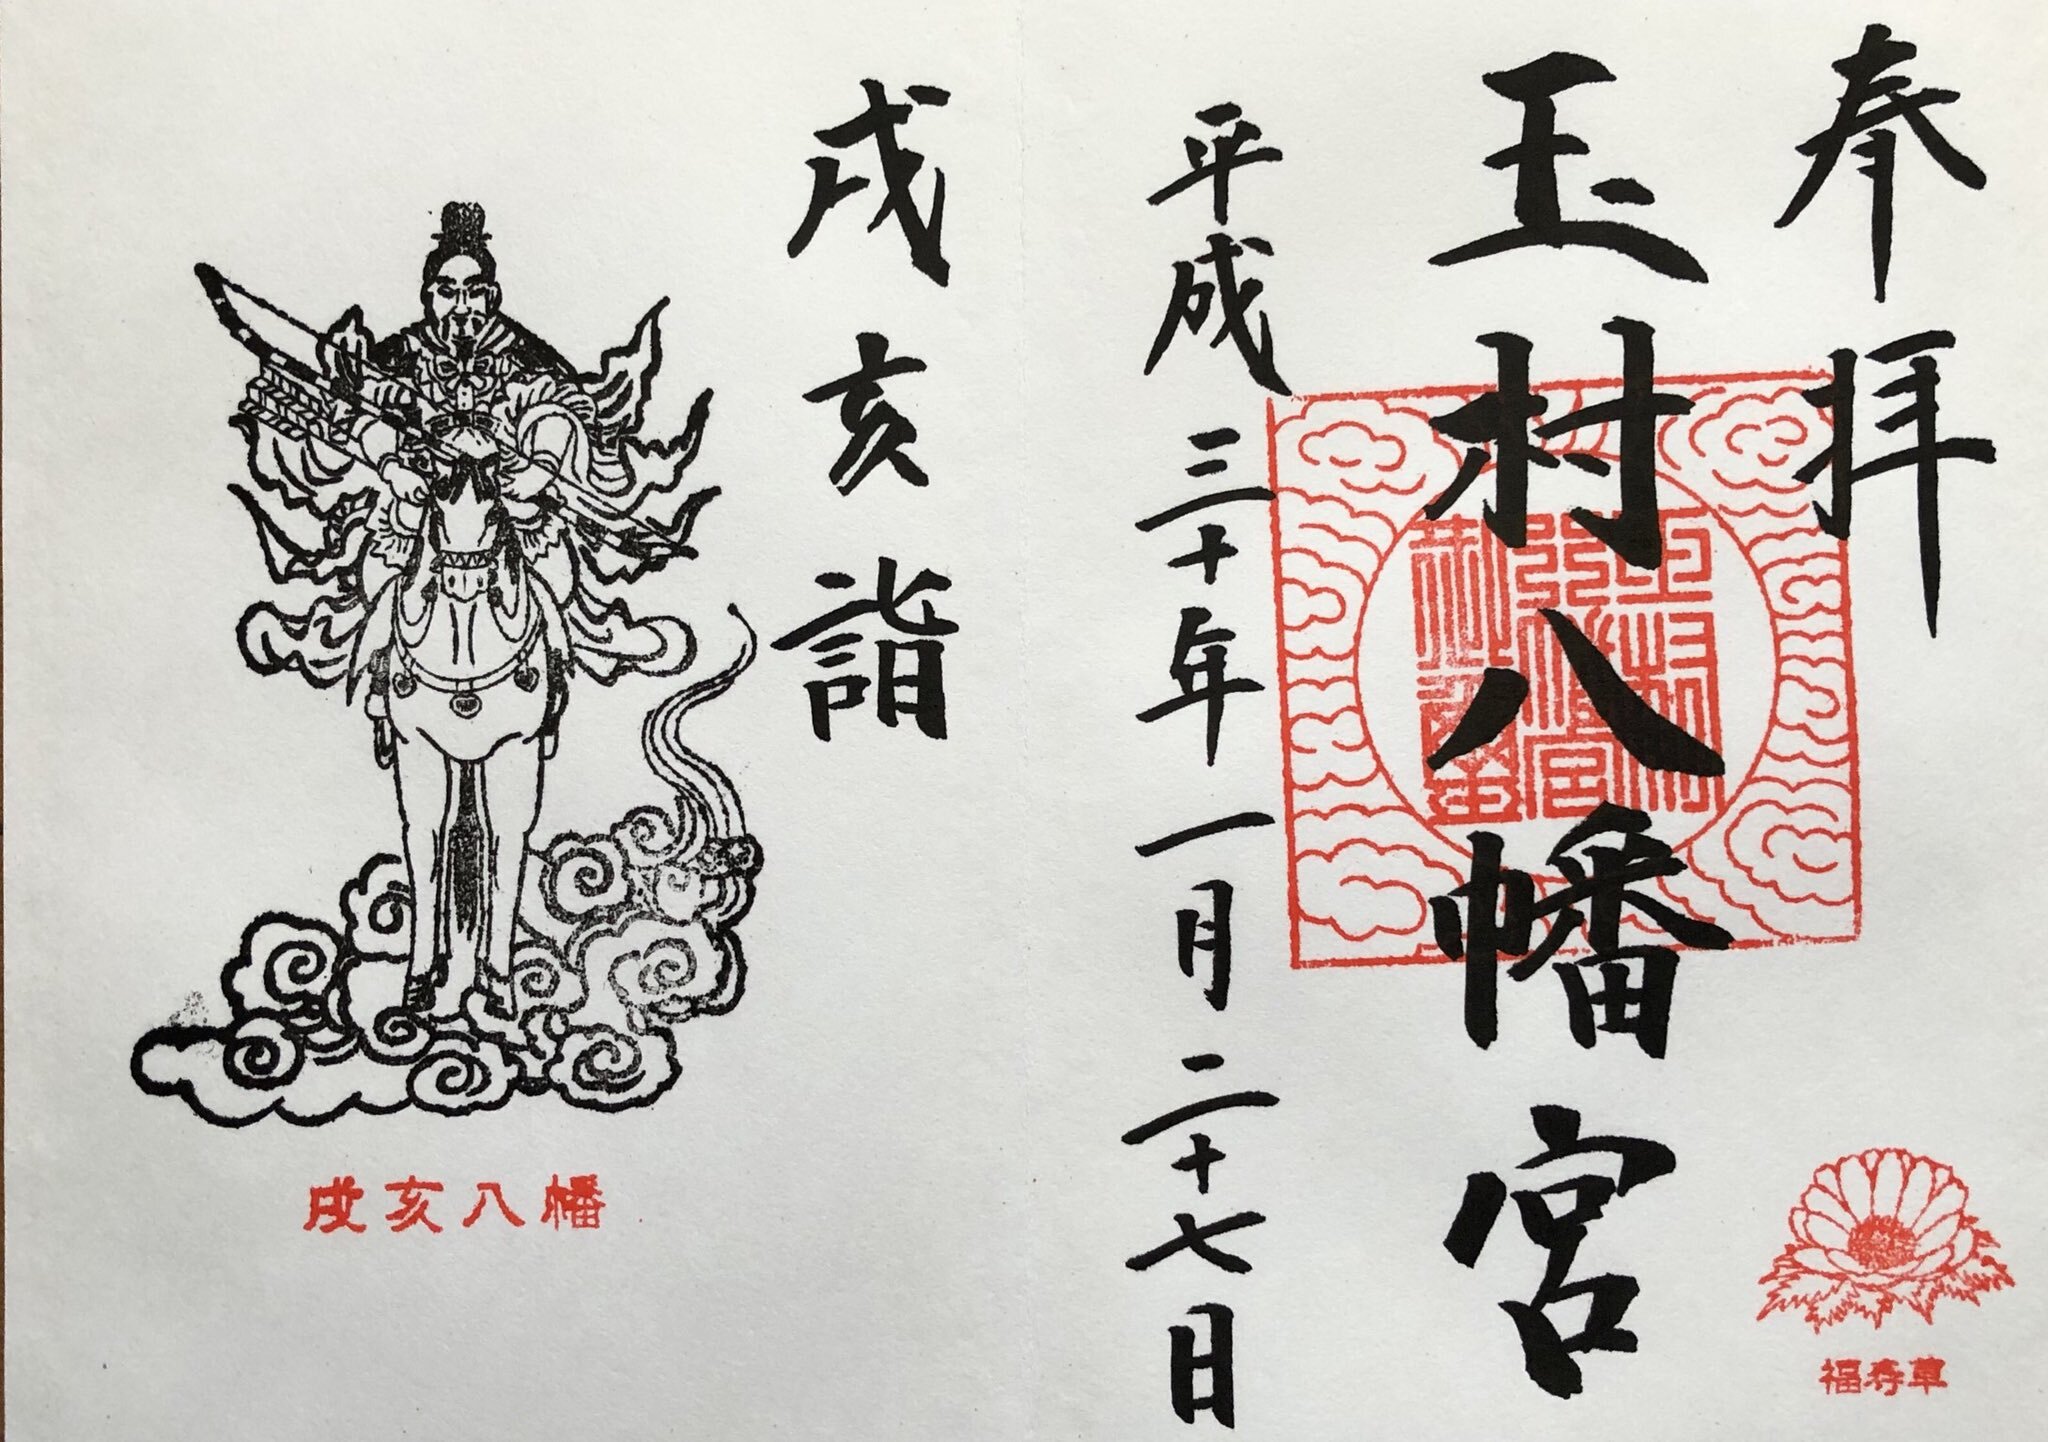 奉拝
玉村八幡宮
平成三十年一月二十七日
戌亥詣
戌亥八幡
福寿草